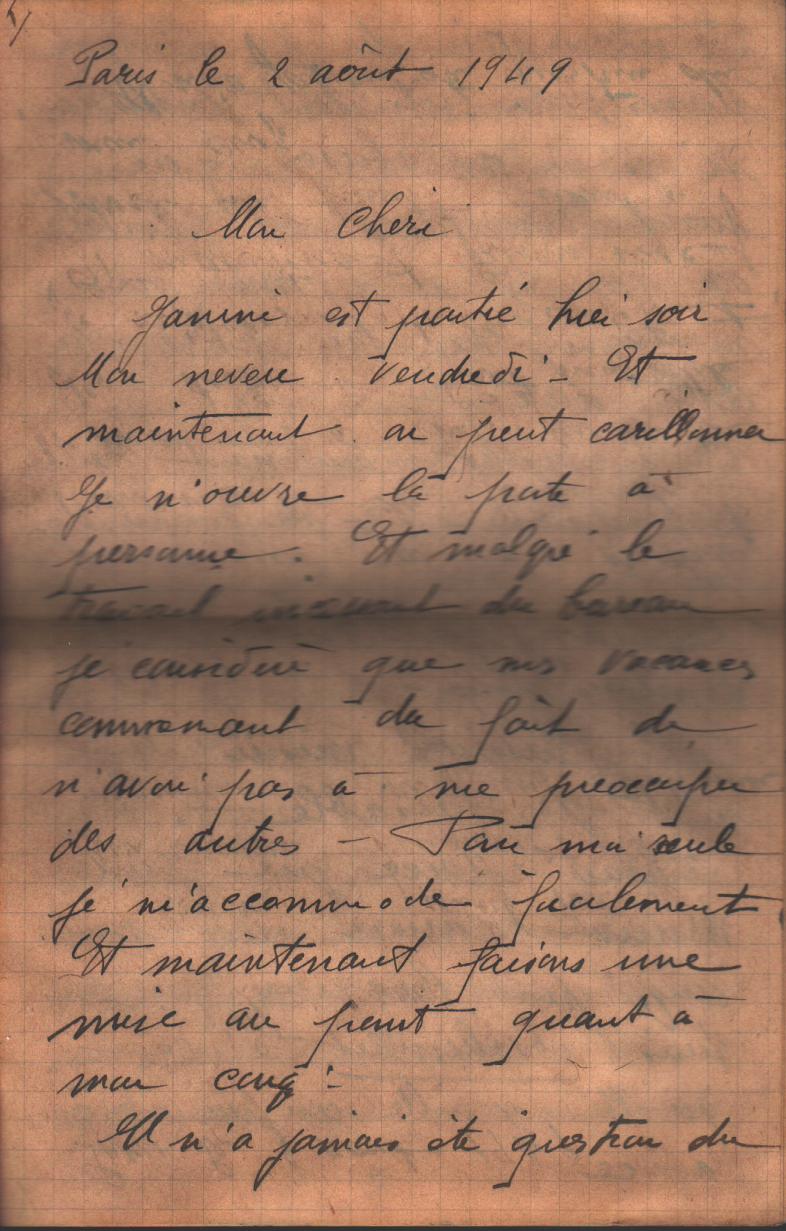 Paris le 2 août 1949
Mon Cheri
Janine est partie hier soir
Mon neveu vendredi - Et
maintenant on peut carillonner
Je n'ouvre la porte à
personne. Et malgré le
travail du bureau
je considère que mes vacances
commencent du fait de
n'avoir pas à me préoccuper
des autres - Pour moi seule
je m'accommode facilement
Et maintenant faisons une
mise au point quant à
mon congé -
Il n'a jamais été question du